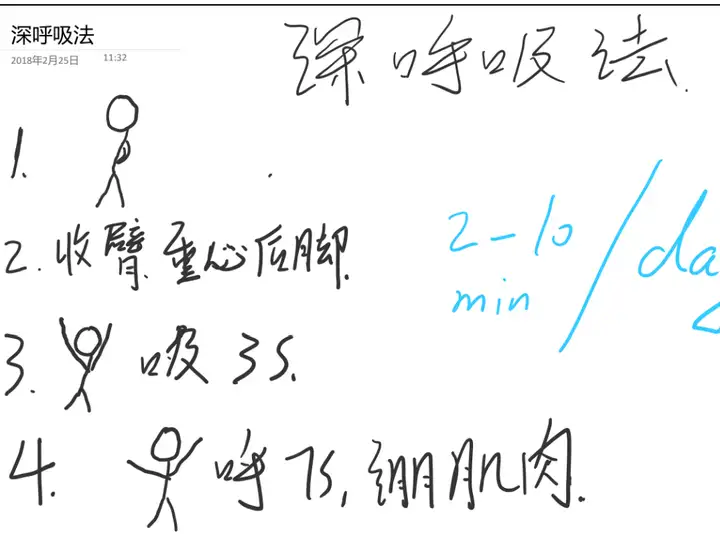 深呼吸法
2018年2月25日 11:32
深呼吸法.
2-10 min/day
1.
2. 收臂.重心后脚.
3. 吸3s.
4. 呼7s,绷肌肉.